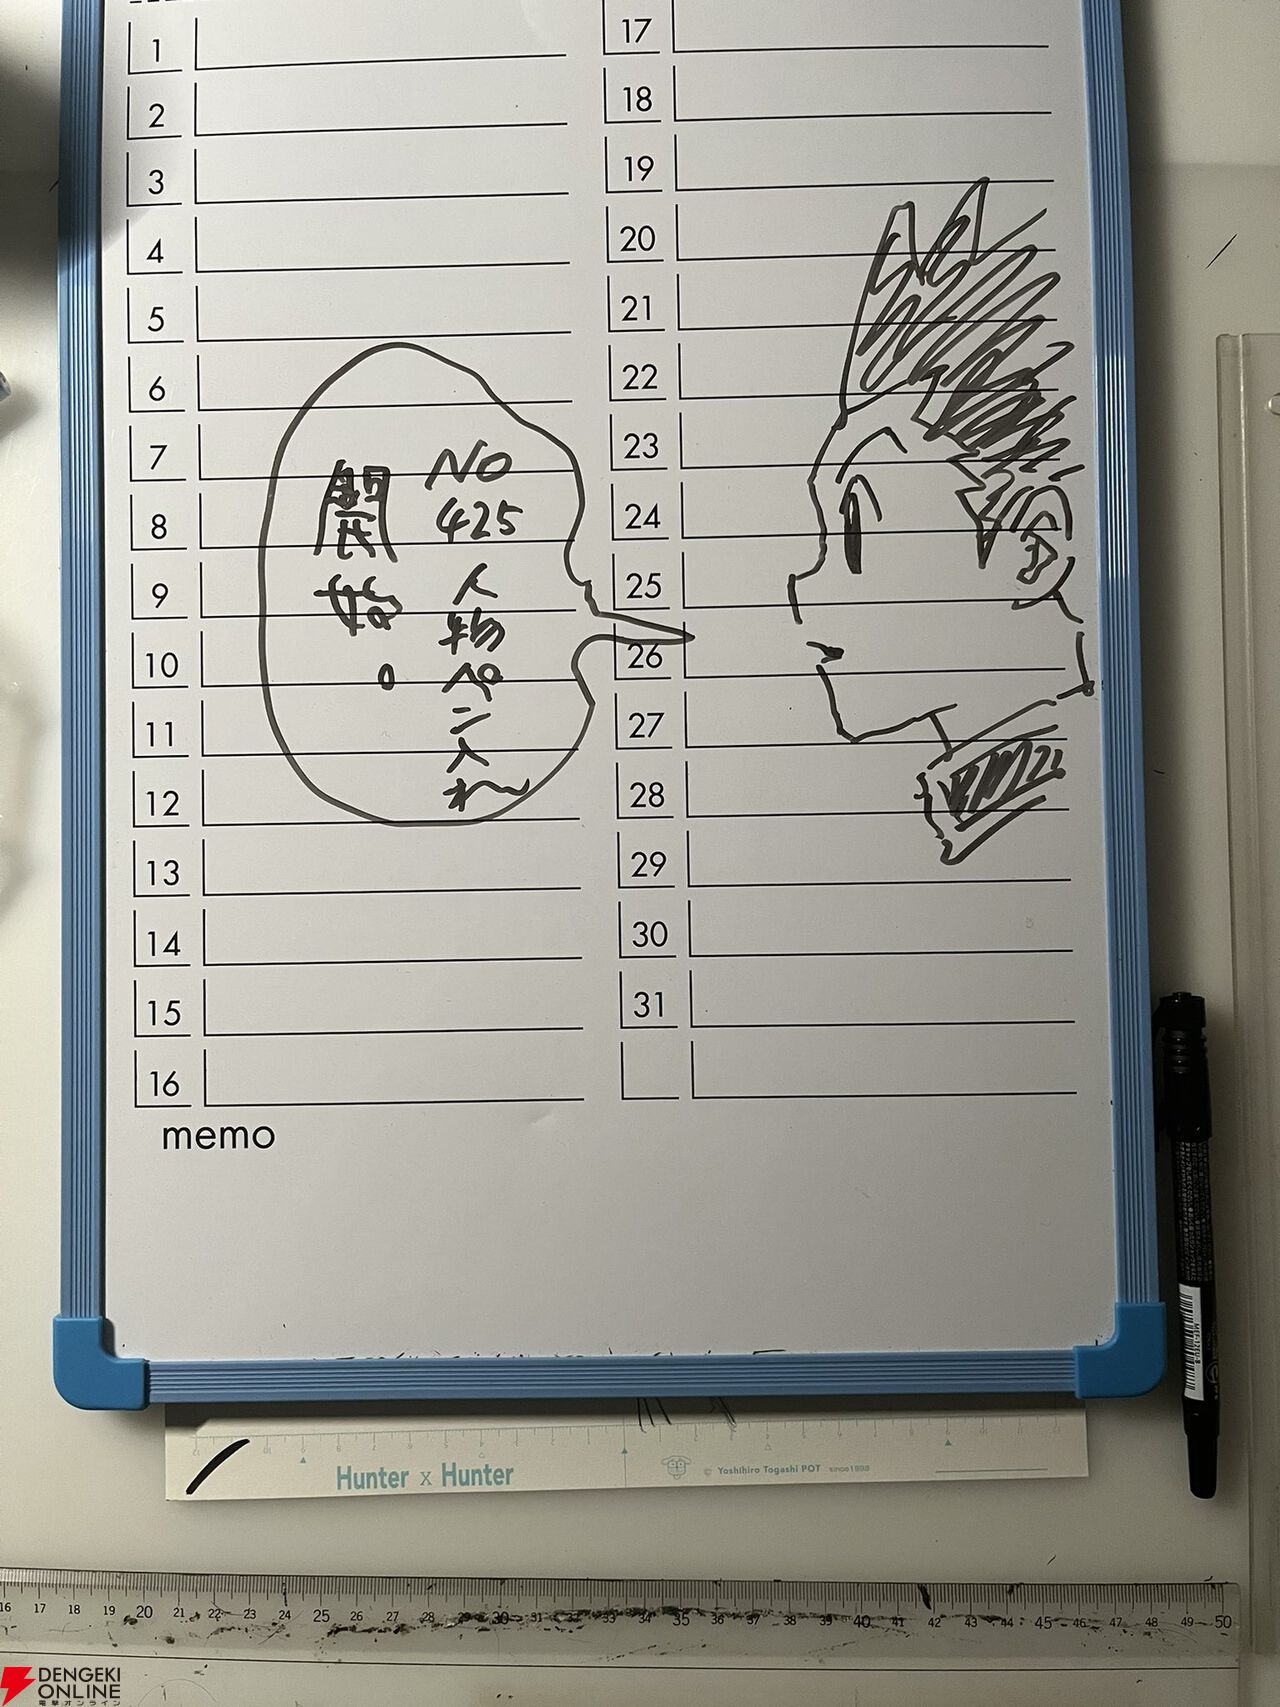 1
2
3
4
5
6
7
8
9
10
11
12
13
14
15
16
memo
17
18
19
20
21
22
23
24
25
26
27
28
29
30
31
NO
425
人物ペン入れ
開始。
Hunter x Hunter
© Yoshihiro Togashi POT since1998
16 17 18 19 20 21 22 23 24 25 26 27 28 29 30 31 32 33 34 35 36 37 38 39 40 41 42 43 44 45 46 47 48 49 50
DENGEKI
ONLINE
電撃オンライン